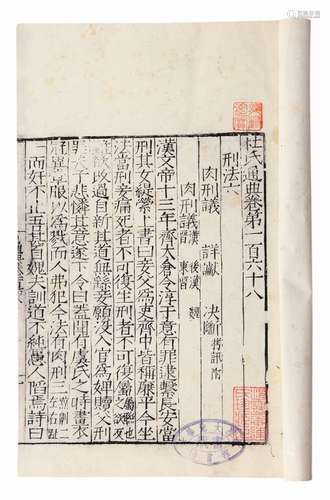 杜氏通典卷第一百六十八
刑法六
肉刑議 詳讞 決斷 考訊附
肉刑議 漢 後漢 魏 東晉
漢文帝十三年齊太倉令淳于意有罪逮繫長安當
刑其女緹縈上書曰妾父為吏齊中皆稱廉平今坐
法當刑妾痛死者不可復生刑者不可復屬
欲改過自新其道無繇妾願沒入官為婢贖父刑
天子悲憐其意遂下令曰蓋聞有虞氏之時畫衣
冠異章服以為戮而人弗犯今法有肉刑三
而奸不止吾甚自媿夫訓道不純愚人陷焉詩曰